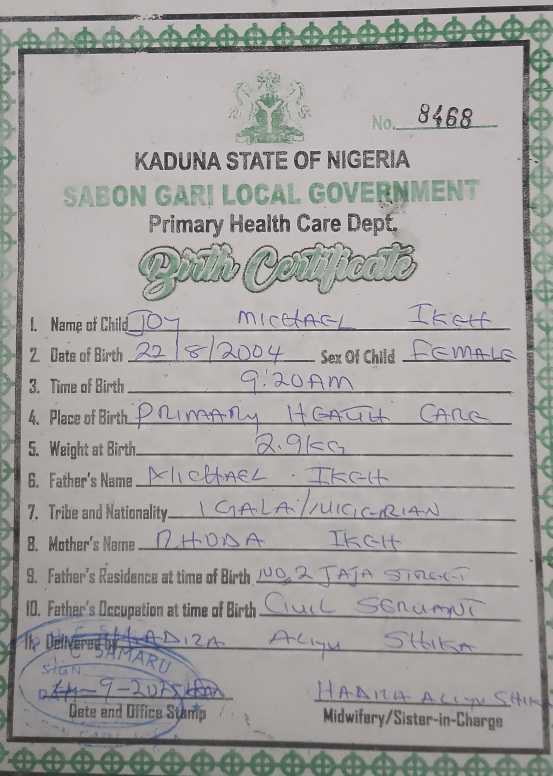 No. 8468
KADUNA STATE OF NIGERIA
SABON GARI LOCAL GOVERNMENT
Primary Health Care Dept.
Birth Certificate
1. Name of Child JOY MICHAEL IKEH
2. Date of Birth 22/8/2004 Sex Of Child FEMALE
3. Time of Birth 9:20AM
4. Place of Birth PRIMARY HEALTH CARE
5. Weight at Birth 2.9KG
6. Father's Name MICHAEL . IKEH
7. Tribe and Nationality IGALA/NIGERIAN
8. Mother's Name RHODA IKEH
9. Father's Residence at time of Birth NO, 2 JAJA STREET
10. Father's Occupation at time of Birth CIVIL SERVANT
11. Delivered by HADIZA ALIYU SHIKA
SAMARU
SIGN
-9-
Date and Office Stamp
HADIZA ALIYU SHIKA
Midwifery/Sister-in-Charge